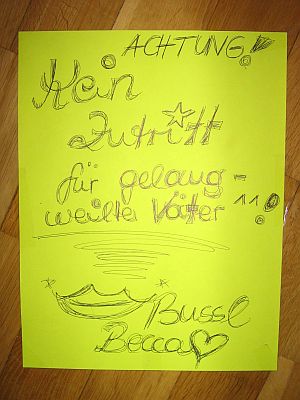 ACHTUNG!
Kein
Zutritt
für gelang-
weilte Väter !!!
Bussl
Becca